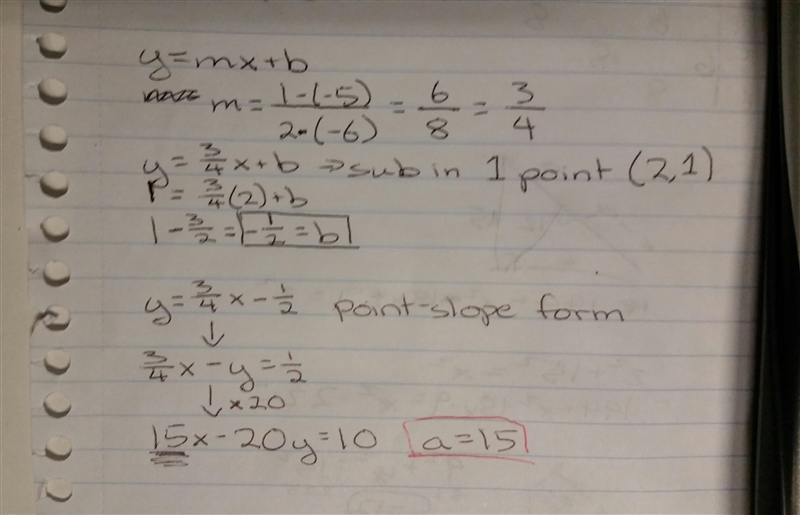 y=mx+b
m= 1-(-5)/2-(-6) = 6/8 = 3/4
y= 3/4x+b ⇒sub in 1 point (2,1)
1= 3/4(2)+b
1-3/2= -1/2=b
y=3/4x-1/2 point-slope form
↓
3/4x-y=1/2
↓x20
15x-20y=10 a=15